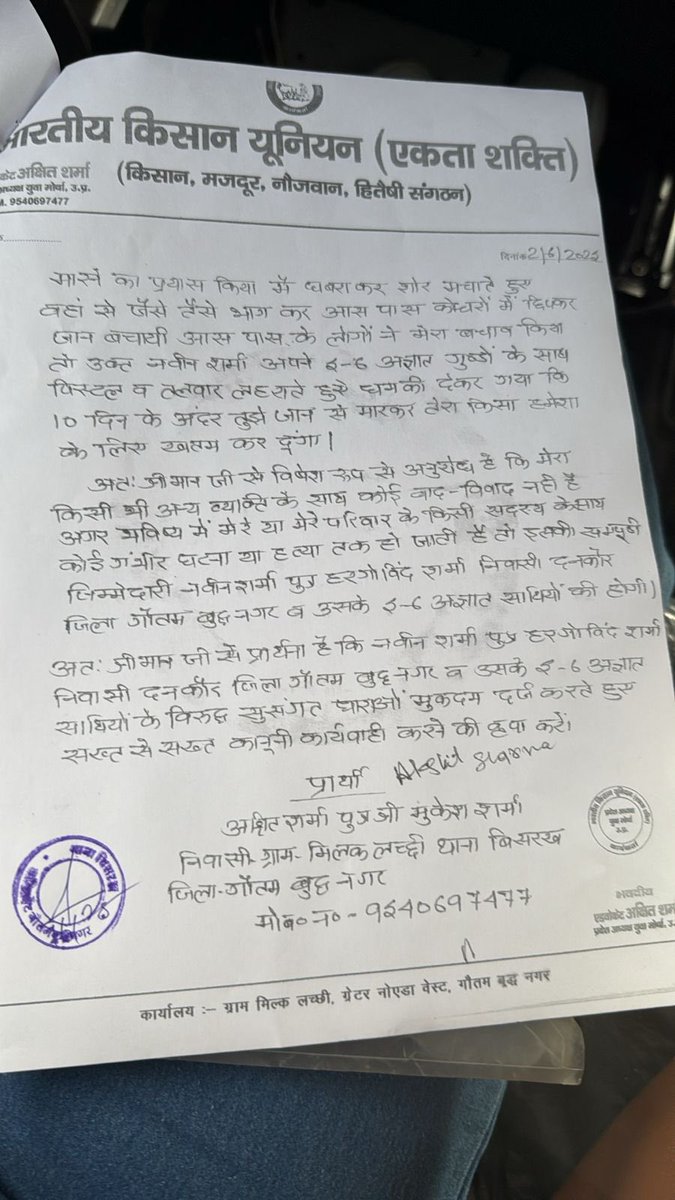 भारतीय किसान यूनियन (एकता शक्ति)
(किसान, मजदूर, नौजवान, हितैषी संगठन)
अक्षित शर्मा
युवा मोर्चा, उ.प्र.
9540697477
दिनांक 2/6/2025
मारने का प्रयास किया मैं घबराकर शोर मचाते हुए
वहां से जैसे तैसे भाग कर आस पास क्वेटरों में छिपकर
जान बचायी आस पास के लोगों ने मेरा बचाव किया
तो उक्त नवीन शर्मा अपने 5-6 अज्ञात गुण्डों के साथ
पिस्टल व तलवार लहराते हुये धमकी देकर गया कि
10 दिन के अंदर तुझे जान से मारकर तेरा किसा हमेशा
के लिए खत्म कर दूंगा।
अतः श्रीमान जी से विशेष रूप से अनुरोध है कि मेरा
किसी भी अन्य व्यक्ति के साथ कोई वाद-विवाद नही है
अगर भविष्य में मेरे या मेरे परिवार के किसी सदस्य के साथ
कोई गंभीर घटना या हत्या तक हो जाती है तो इसकी सम्पूर्ण
जिम्मेदारी नवीन शर्मा पुत्र हरगोविंद शर्मा निवासी दनकौर
जिला गौतम बुद्ध नगर व उसके 5-6 अज्ञात साथियों की होगी।
अतः श्रीमान जी से प्रार्थना है कि नवीन शर्मा पुत्र हरगोविंद शर्मा
निवासी दनकौर जिला गौतम बुद्ध नगर व उसके 5-6 अज्ञात
साथियों के विरुद्ध सुसंगत धाराओं मुकदम दर्ज करते हुए
सख्त से सख्त कानूनी कार्यवाही करने की कृपा करें।
प्रार्थी Akshit Sharma
अक्षित शर्मा पुत्र श्री मुकेश शर्मा
निवासी- ग्राम- मिलक लच्छी थाना बिसरख
जिला- गौतम बुद्ध नगर
मो०न०- 9540697477
भवदीय
एडवोकेट अक्षित
प्रदेश अध्यक्ष युवा मोर्चा,
कार्यालय :– ग्राम मिल्क लच्छी, ग्रेटर नोएडा वेस्ट, गौतम बुद्ध नगर